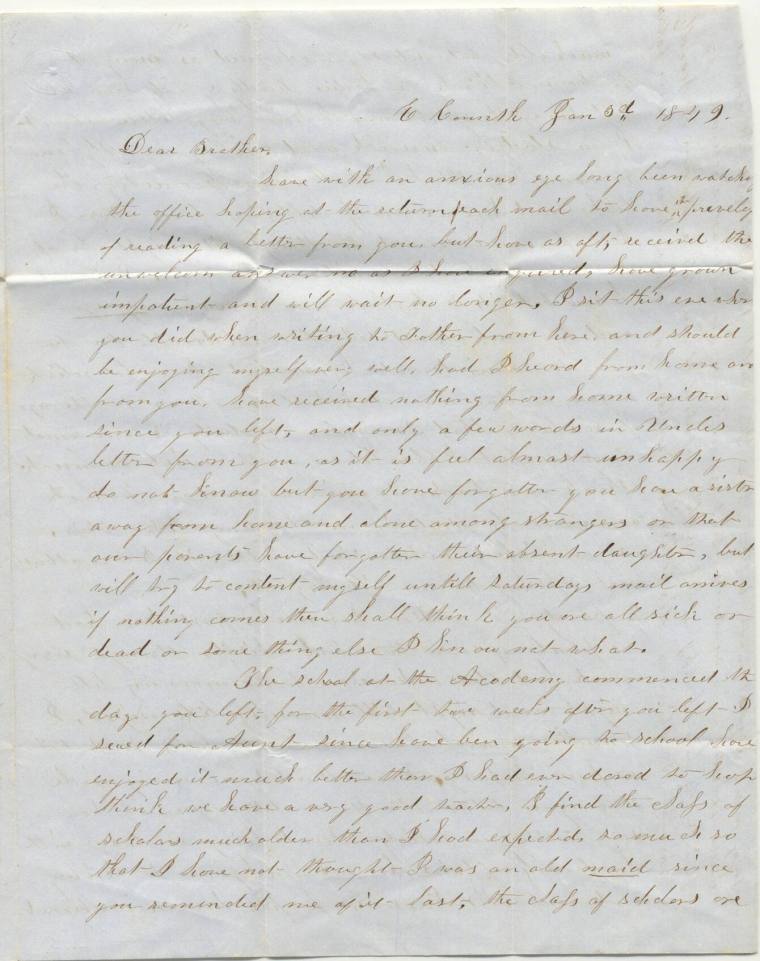 E Corinth Jan 3d 1849.
Dear Brother,
have with an anxious eye long been watching
the office hoping at the return each mail to have the preveleg
of reading a letter from you, but have as oft, receivd the
unwelcom answer no as I have enquired, have grown
impatient and will wait no longer, I sit this eve wher
you did when writing to Father from here, and should
be enjoying myself very well, had I heard from home or
from you, have received nothing from home written
since you left, and only a few words in Uncles
letter from you, as it is feel almost unhappy
do not know but you have forgotten you have a sister
away from home and alone among strangers or that
our parents have forgotten their absent daughter, but
will try to content myself untill Saturdays mail arrives
if nothing comes then shall think you are all sick or
dead or some thing else I know not what.
The school at the Academy commenced the
day you left, for the first two weeks after you left I
sewed for Aunt since have ben going to school have
enjoyed it much better than I had ever dared to hope
think we have a very good teacher, I find the class of
scholars much older than I had expected, so much so
that I have not thought I was an old maid since
you reminded me of it last, the class of scholars are